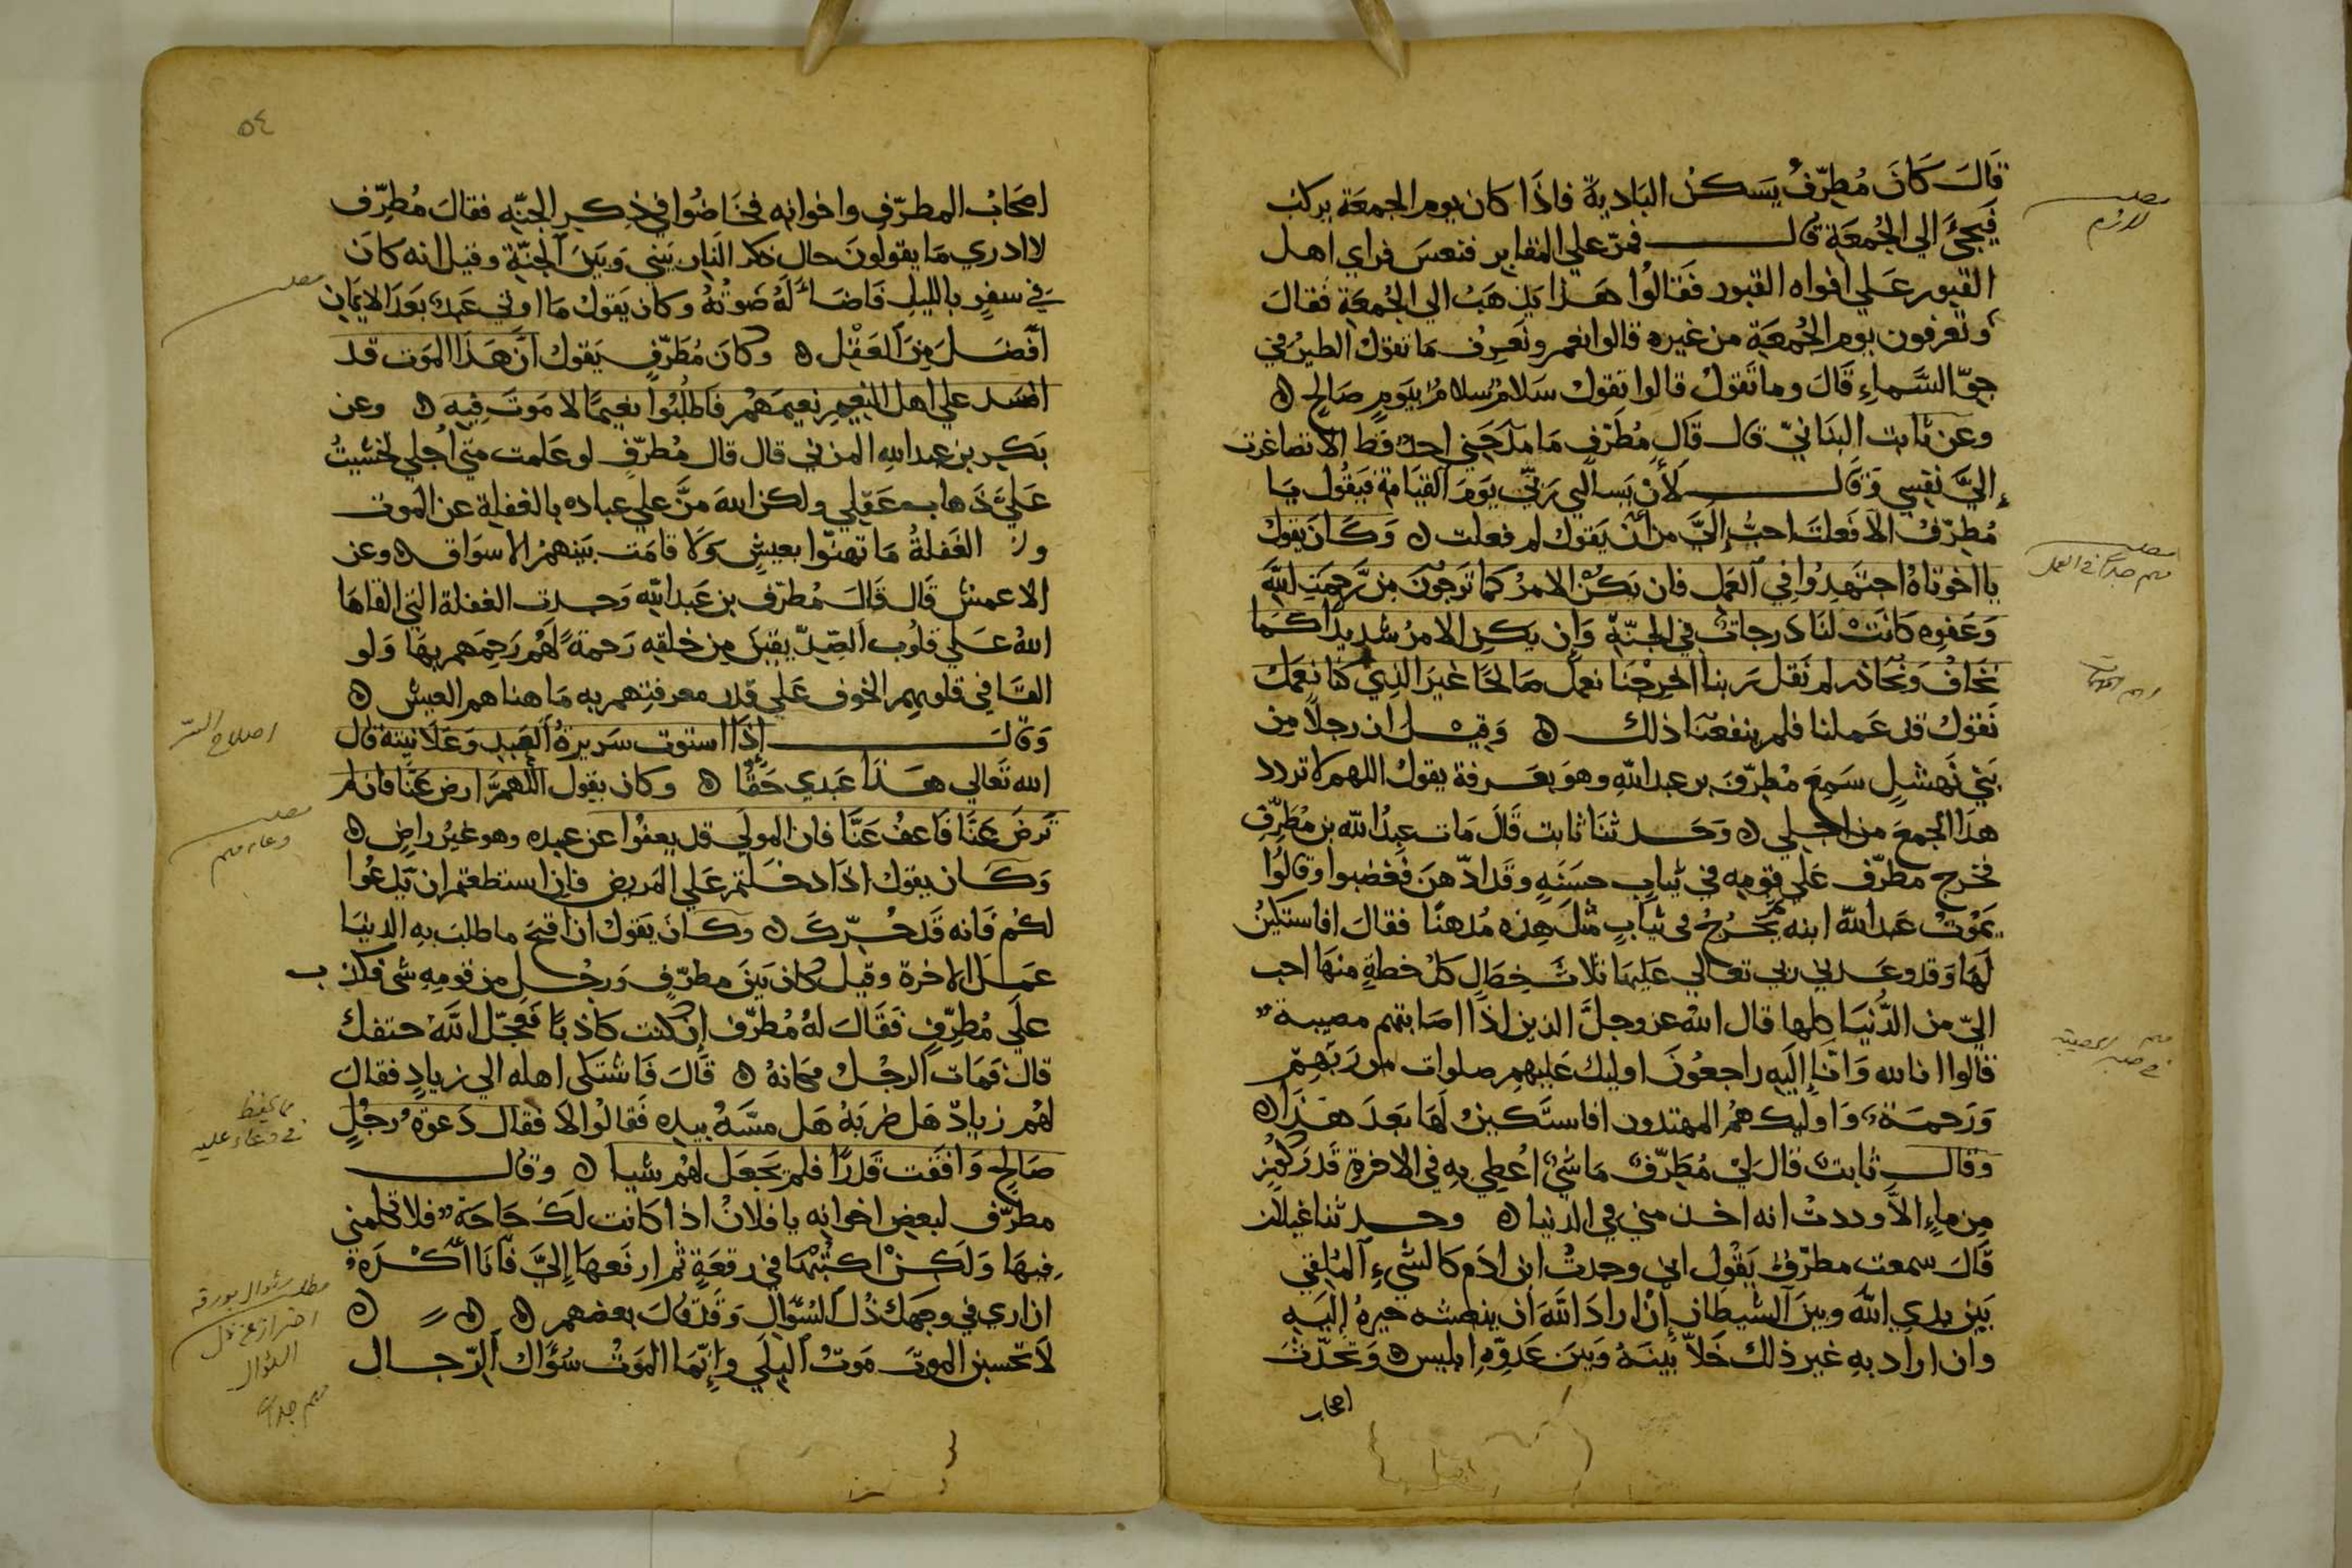 قَالَ كَانَ مُطرّفُ يَسكنُ البَادية فاذَا كان يوم الجمعَة يركب
فَيَجئ الي الجُمعَة قال فمرّ علي المقابر فنعسَ فراي اهل
القبور عَلي افواه القبور فَقالُوا هَذا يذهَبُ الي الجُمعَة فقالَ
وتعرفون يوم الجُمعَة من غيره قالوا نعم ونعرف مَا تقول الطيرُ في
جوّ السَّماءِ قَالَ وما تَقولُ قالوا تقول سَلامُ سلامُ ليَومٍ صَالحٍ ه
وعن ثابت البناني قال قَال مُطَرّف مَا مدَحَني احدٌ قَط الا تصاغرت
إليَّ نفسي وَقَال لأنْ يَسالني رَبّي يَومَ القيَامَة فيَقُول يَا
مُطرّفُ الا فَعلتَ احبُّ إليَّ من أن يَقول لم فعلت ه وَكَان يَقولُ
يا اخوتاهُ اجتهِدُوا في العَمل فان يَكُن الامرُ كما تَرجُونَ من رَّحمَت اللّه
وَعَفوه كانَتْ لنَا دَرجاتٌ في الجنّة وَإن يكن الامرُ شديداً كمَا
نخَافُ وَنُحَاذر لم نَقل رَبنا اخرِجْنَا نعمل صَالحًا غيرَ الذي كنا نعمَل
نَقولُ قد عَملنا فلم ينفعنَا ذلك ه وَقيل ان رجلاً من
بَني نَهشلٍ سَمِعَ مُطرّفَ بن عبد اللّه وهوَ بعَرفة يقولُ اللهم لا تردد
هذَا الجمعَ من اجلي ه وَحَدثنَا ثابت قَالَ مَات عبدُ اللّه بن مُطرّف
فخرج مطرّف عَلي قومِه في ثيابٍ حسَنَه وقَد ادّهنَ فغضبوا وقالُوا
يمَوْتُ عَبد اللّه ابنه يَخرُجُ في ثيابٍ مثل هذه مُدهنًا فقالَ افاستكينُ
لَهَا وَقد وعَدني ربي تعالي عَليهَا ثلاث خِصَالٍ كلُ خصلةٍ منهَا احب
اليّ من الدُّنيَا كلها قال اللّه عز وجلَّ الذين اذَا اصَابتهم مصيبة
قالوا انا لله وَانّا إليه راجعُونَ اوليك عَليهم صلوات من ربهِم
وَرَحمَة وَاوليك همُ المهتدون افاستَكينُ لَهَا بَعدَ هذَا ه
وقال ثابت قالَ ليْ مُطَرّفٌ مَا شَيٌ اُعْطي بهِ في الاخرة قَدرَ كُوزٍ
مِن ماءٍ الاّ وددتُ انه اخذ مني في الدنيا ه وحدثنا غيلان
قَالَ سمعت مطرّفٌ يَقُول اني وجدتُ ابن ادَم كالشيءِ المُلقي
بَين يدي اللّه وبينَ الشيطان إن ارادَ اللّهَ ان ينعشه جيرهُ إليَه
وان اراد به غير ذلك خَلاّ بَينهُ وَبينَ عَدوّه ابليس ه وَتحدّثَ
اصحاب
٥٤
اصحَابُ المطرّف واخوانه فخَاضُوا في ذِكر الجنّه فقالَ مُطرّف
لا ادري مَا يقولونَ حال ذكر النَار بَيني وَبَينَ الجنّة وقيل انه كانَ
في سفرٍ بالليل فَاضَاءَ لَهُ صَوتُهُ وكان يَقولُ مَا اوتي عَبدٌ بَعدَ الايمَان
افضَل مِنَ العَقْل ه وكانَ مُطَرّف يَقول انّ هَذَا الموَت قد
افسَد علي اهل النعيم نعيمَهُم فَاطلُبُوا نعيمًا لا مَوتَ فيه ه وعن
بَكر بن عبد اللهِ المزني قال قال مُطرّفٍ لو عَلمت متي اجلي لخشيتُ
عَليَّ ذَهابَ عَقلي ولكن اللهَ مَنَّ علي عباده بالغفلة عن الموت
ولا الغَفلةُ مَا تهنّوا بعيشٍ وَلا قامَت بَينهمُ الاسوَاق ه وعن
الاعمش قَال قَالَ مُطرّف بن عَبد اللّه وَجدت الغفلة التي القاهَا
اللهُ عَلي قلُوب الصِّدّيقينَ مِن خلقه رَحمةً لَهُم رَحِمَهم بهَا وَلو
القَا في قلوبهم الخوف عَلي قدر معرفتهم به مَا هنا هم العيش ه
وَقَالَ إذَا استوت سَريرةُ العَبد وَعَلانيته قال
الله تَعَالي هذَا عَبدي حَقًّا ه وكان يقول اللهُمَّ ارض عَنَّا فان لم
تَرضَ عَنَّا فَاعفُ عَنَّا فان المولي قد يعفُوا عن عبده وهو غيرُ راضٍ ه
وَكَان يقول اذَا دخَلتم عَلي المَريض فإن استطعتم ان يَدعُوا
لكُم فَانه قَد حُرّكَ ه وكانَ يَقول ان اقبحَ ما طلبَ به الدنيَا
عَمَل الاخرة وقيل كان بَينَ مطرّفٍ وَرجُلٍ من قومِه شي فكذب
علَي مُطرِّفٍ فَقَالَ لهُ مُطرّف إن كنت كاذبًا فعجّل اللّهُ حتفك
قالَ فمَاتَ الرجُلُ مكانهُ ه قَالَ فَاشتكي اهله الي زيادٍ فقالَ
لهُم زيادٌ هَل ضربَهُ هَل مسَّهُ بيده فَقالُوا لا فقال دَعوَةُ رَجُلٍ
صَالحٍ وَافقَت قَدرًا فلم يَجعَل لهُم شيا ه وقال
مطرّف لبعض اخوانه يا فلانُ اذا كانت لَكَ حَاجَة فلا تكلمني
فيهَا وَلَكن اكتُبهَا في رقعَةٍ ثم ارفَعهَا إليَّ فانَا اكْرَهُ
ان اري في وجهك ذُل السُّوال وَقَد قَالَ بعضهم ه ه ه
لاَ تحسبن الموتَ مَوتُ البلَي وَإنّمَا الموَتُ سُؤال الرّجال
اصلاح السّر
مطلب
دعاء مهم
مما يحفظ
في دعاء عليه
مطلب سُوال بورقه
احتراز عن ذل
السُوال
مهم جدا